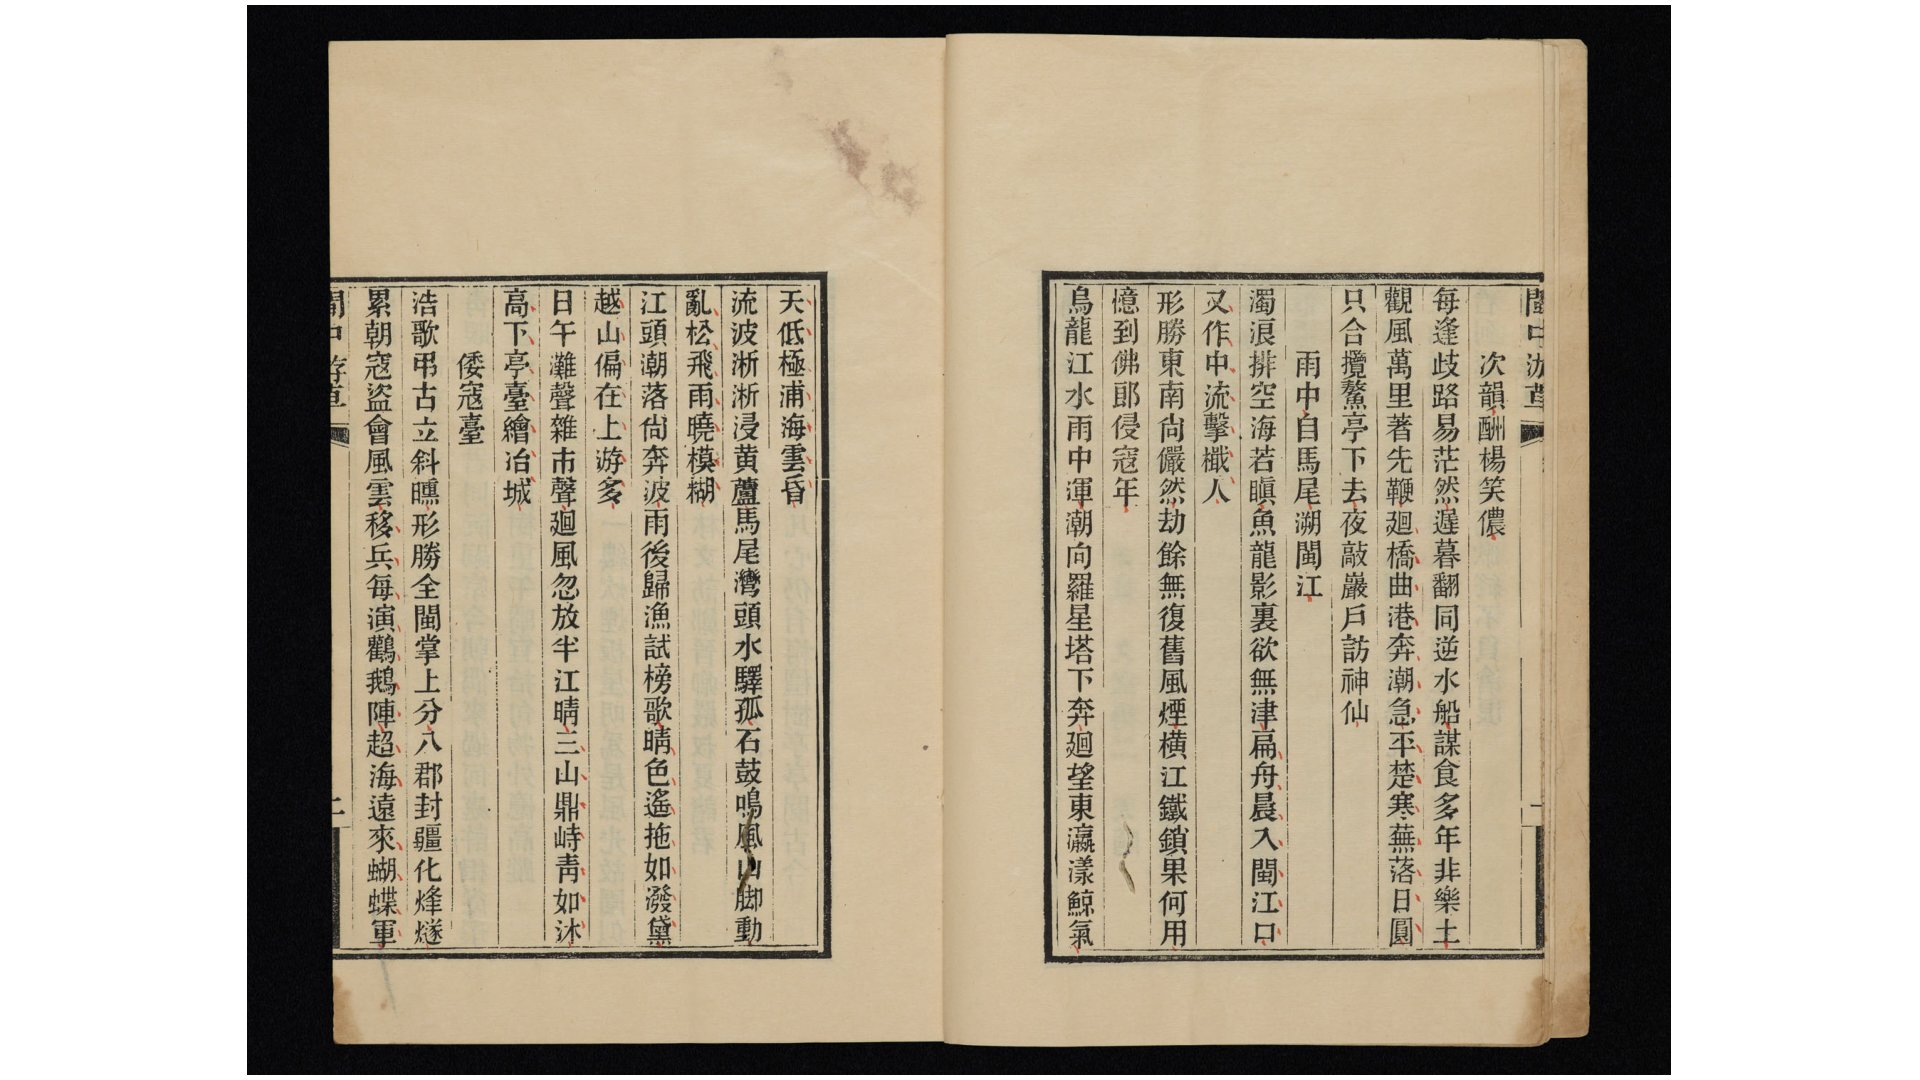 閩中游草
次韻酬楊笑儂
每逢歧路易茫然遲暮翻同逆水船謀食多年非樂土
觀風萬里著先鞭廻橋曲港奔潮急平楚寒蕪落日圓
只合攬鰲亭下去夜敲巖戶訪神仙
雨中自馬尾溯閩江
濁浪排空海若瞋魚龍影裏欲無津扁舟晨入閩江口
又作中流擊檝人
形勝東南尙儼然劫餘無復舊風煙橫江鐵鎖果何用
憶到佛郎侵寇年
烏龍江水雨中渾潮向羅星塔下奔廻望東瀛漾鯨氣
天低極浦海雲昏
流波淅淅浸黄蘆馬尾灣頭水驛孤石鼓鳴風山脚動
亂松飛雨曉模糊
江頭潮落尙奔波雨後歸漁試榜歌晴色遙拖如潑黛
越山偏在上游多
日午灘聲雜市聲廻風忽放半江晴三山鼎峙靑如沐
高下亭臺繪冶城
倭寇臺
浩歌弔古立斜曛形勝全閩掌上分八郡封疆化烽燧
累朝寇盜會風雲移兵每演鸛鵝陣超海遠來蝴蝶軍
閩中游草
二